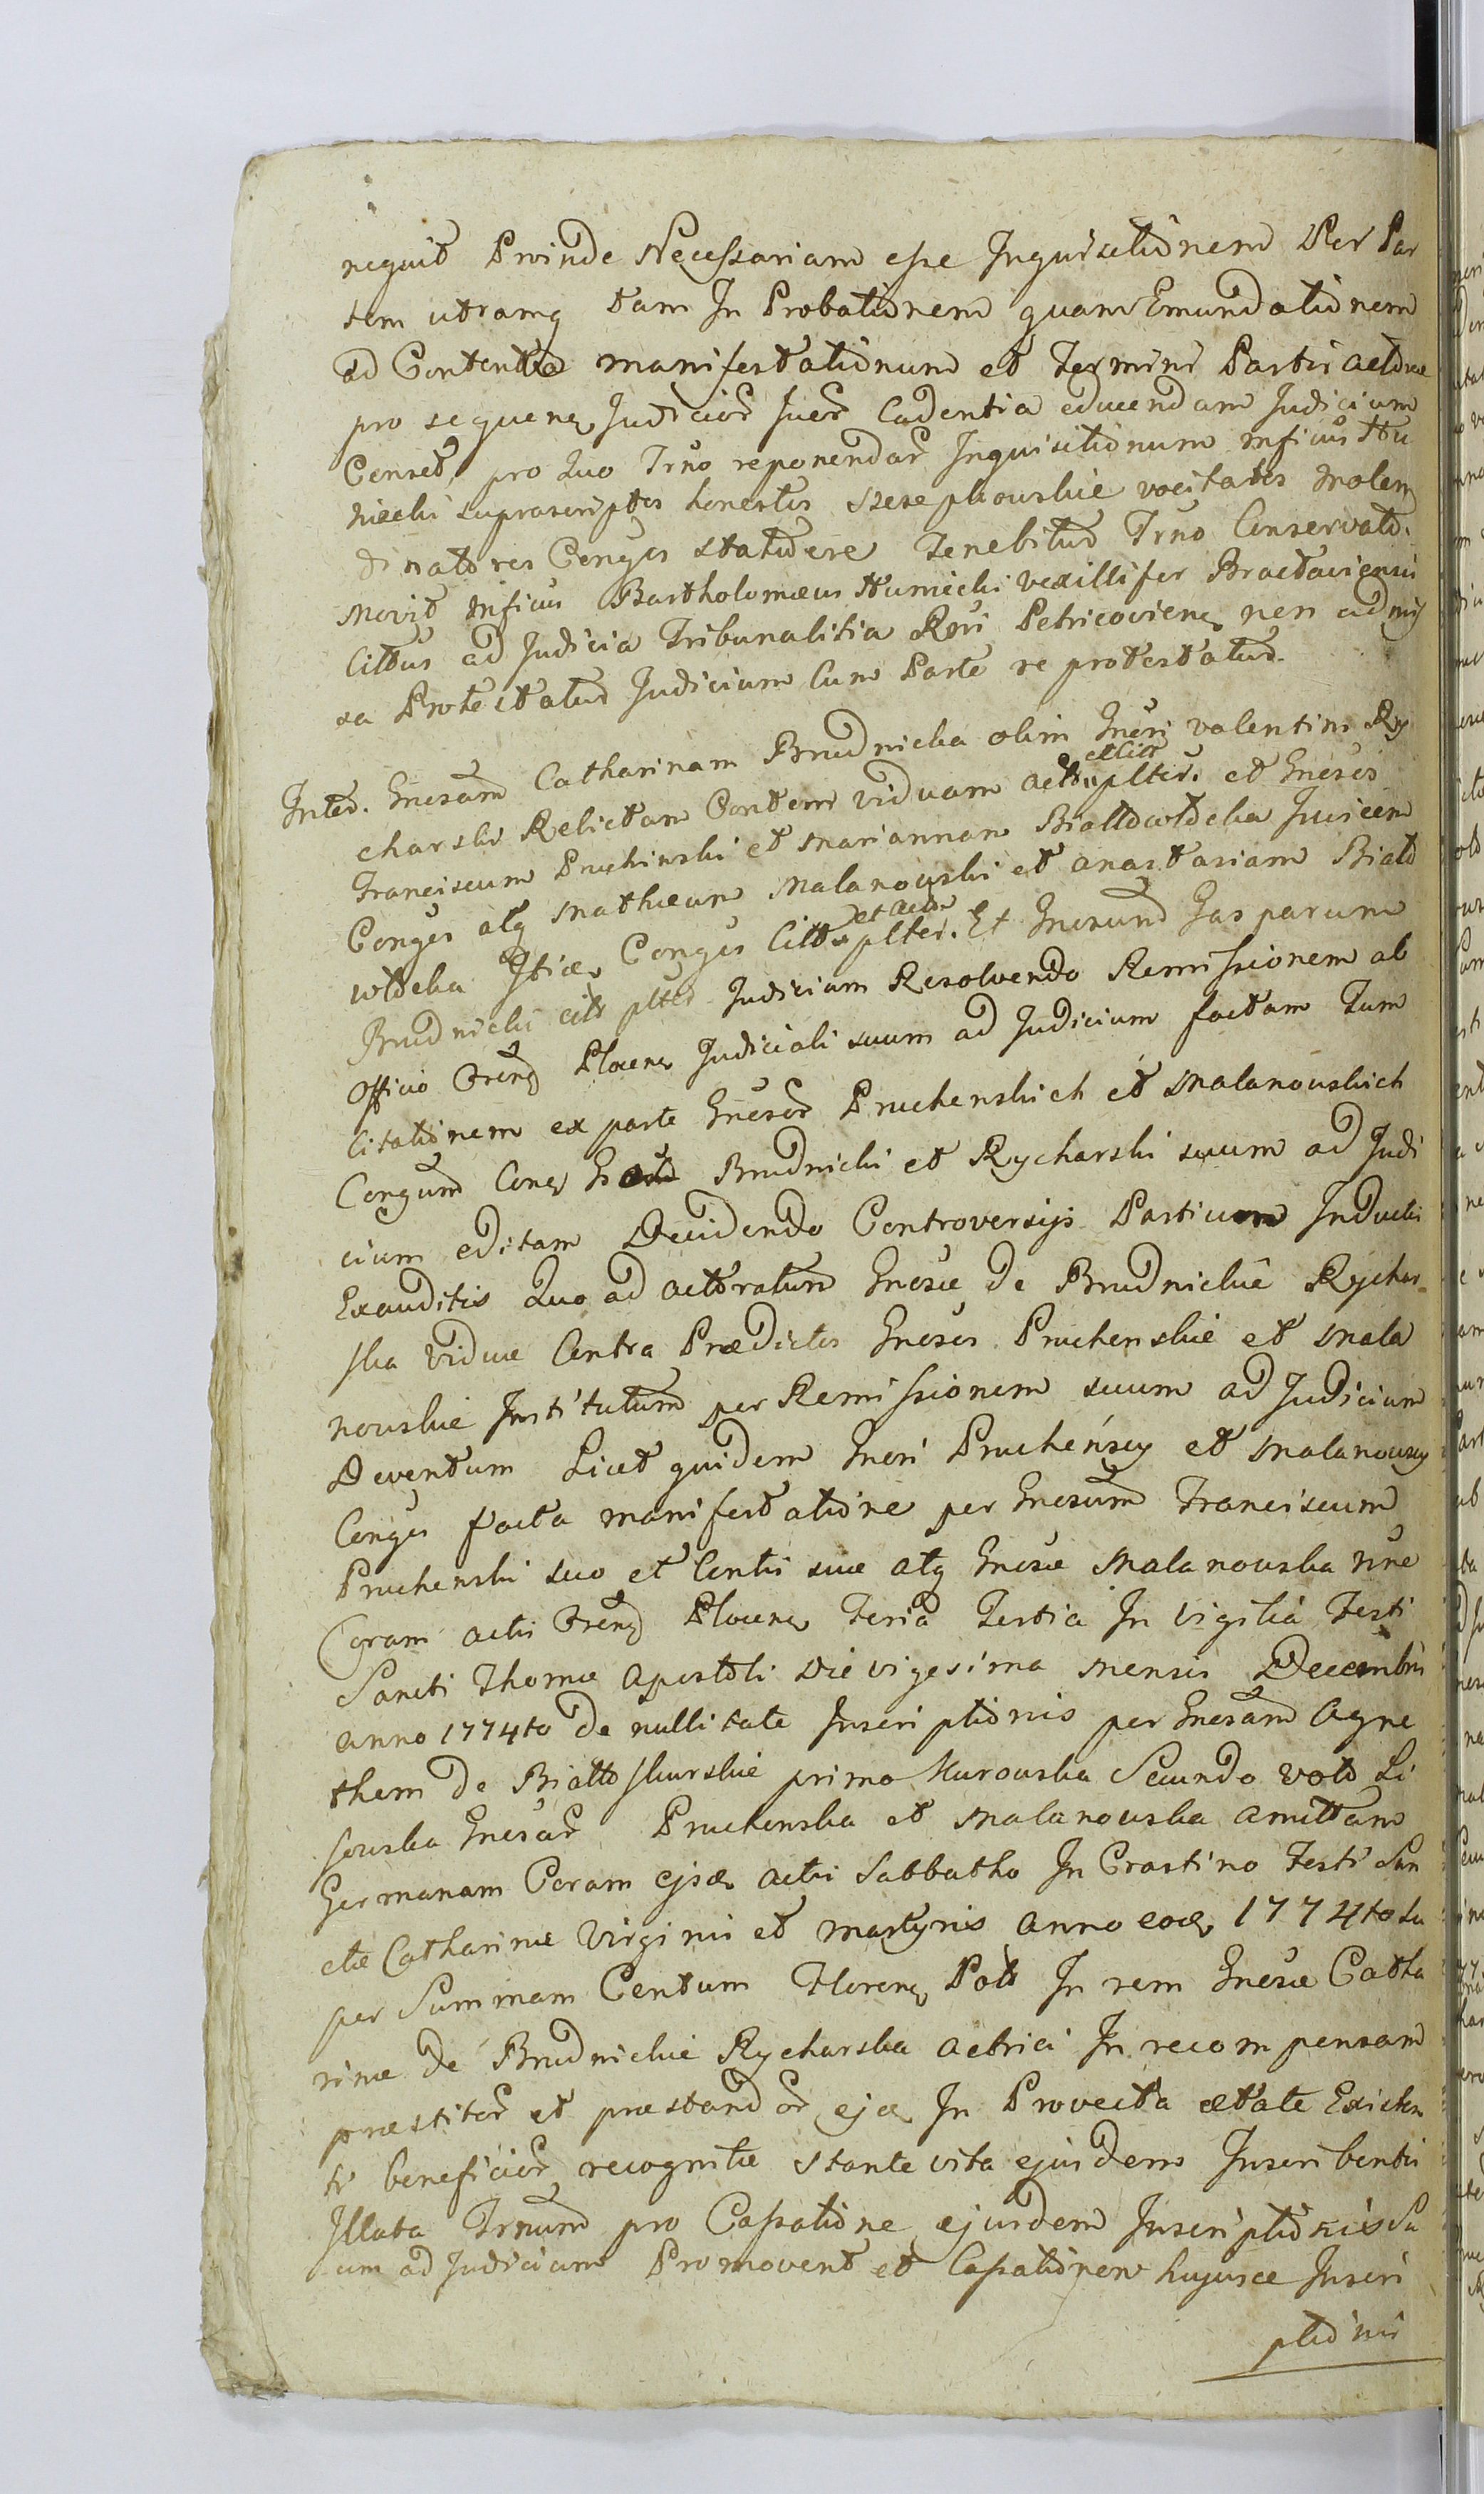 nequit Proinde Necessariam esse Inquisitionem Per Par
tem utramq tam In Probationem quam Emundationem
ad Contenta manifestationum et Termini Partis actorea
pro sequenq Judicior Juer Cadentia educendam Judicium
Censet, pro Quo Trno reponendar Inquisitionum Mficus Hu
niecki suprascriptos honestos Szeseplowskie vocitatos Molen
dinatores Conges statuere Tenebitur Trno Conservato.
Movit Mficus Bartholomæus Huniecki Vexillifer Bractaviensis
Cittus ad Judicia Tribunalitia Rgni Petricoviens non admis
sa Protestatur Judicium Cum Parte re protestatur.
Inter. Gnesam Catharinam Brudnicka olim Gnesi Valentini Ry
et Citt
charski Relictam Contem viduam acto. pltir. et Gnesos
Franciscum Pruchinski et Mariannam Biallowtocka Invicem
Conges atq Mathæum Malanowski et Anastasiam Biało
et acto
wtocka Itidæ Conges Citt pltes. Et Gnesum Gasparum
Brudnicki citt pltes Judicium Resolvendo Remissionem ab
Officio Crensi Plocenq Judiciali suum ad Judicium factam Tum
Citationem ex parte Gnesor Pruchenskich et Malanowskich
Congum Conq Brudnicki et Rycharski suum ad Judi
cium editam Decidendo Controversijs Partium Inductis
Exauditis Quo ad actoratum Gnesæ de Brudnickie Rychar
ska viduæ Contra Prædictos Gnesos Pruchenskie et Mala
nowskie Institutum per Remissionem suum ad Judicium
Deventum Licet quidem Gnesi Pruchenscy et Malanowscy
Conges facta manifestatione per Gnesum Franciscum
Pruchenski suo et Contis suæ atq Gnesæ Malanowska nne
Coram actis Crens Plocenq Feria Tertia In Vigilia Festi
Sancti Thomæ Apostoli Die vigesima Mensis Decembris
Anno 1774to de nullitate Inscriptionis per Gnesam Agne
them de Białłoskurskie primo Kurowska Secundo voto Li
sowska Gnesar Pruchenska et Malanowska Amittam
Germanam Coram ejsdæ actis Sabbatho In Crastino Festi San
ctæ Catharinæ Virginis et Martyris Anno eodæ 1774to Su
per Summam Centum Florenq Poll In rem Gnesæ Catha
rinæ de Brudnickie Rycharska actrici In recompensam
præstitor et præstandor ejdæ In Provecta ætate Existen
ti beneficior recognitæ Stante vita ejusdem Inscribentis
Illata Trnum pro Cassatione ejusdem Inscriptionis Su
um ad Judicium Promovent et Cassationem hujusce Inscri
ptionis